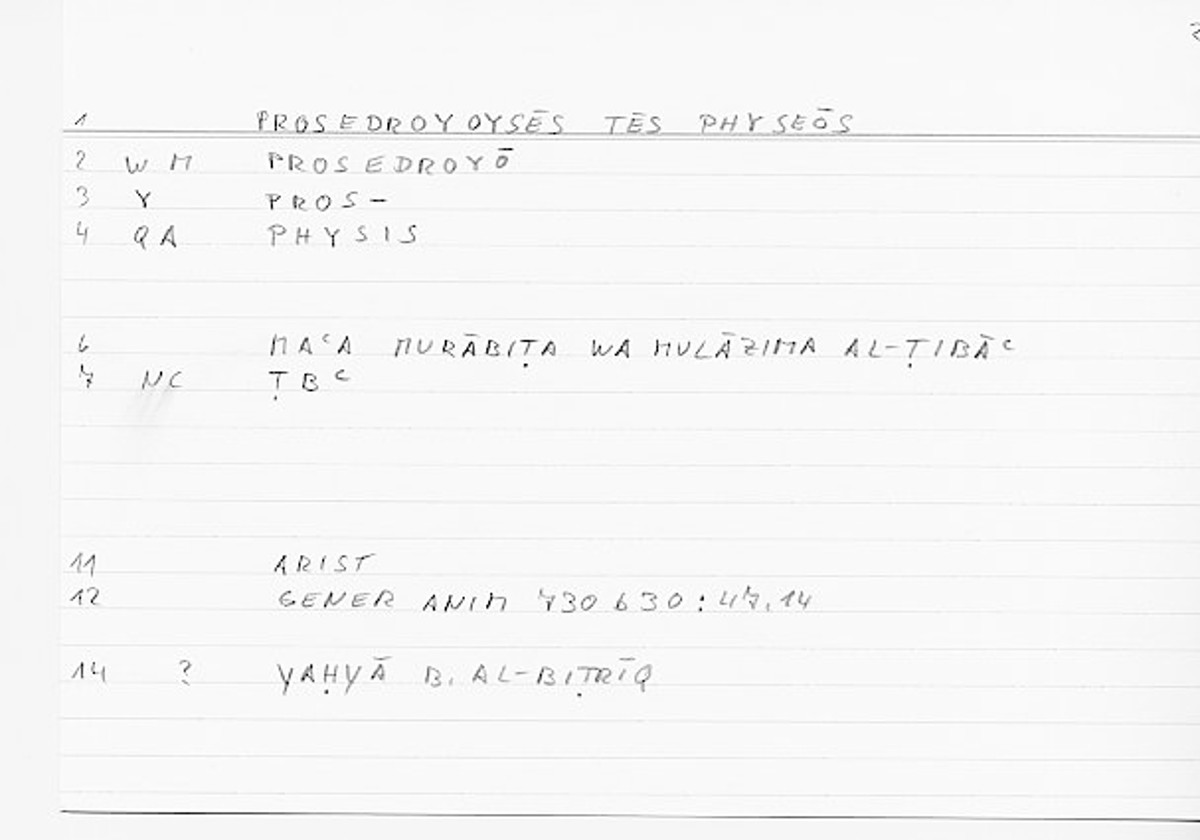 1 PROSEDROYOYSĒS TĒS PHYSEŌS
2 W M PROSEDROYŌ
3 Y PROS-
4 QA PHYSIS
6 MAᶜA MURĀBIṬA WA MULĀZIMA AL-ṬIBĀᶜ
7 NC ṬBᶜ
11 ARIST
12 GENER ANIM 730 b 30 : 47.14
14 ? YAḤYĀ B. AL-BIṬRĪQ